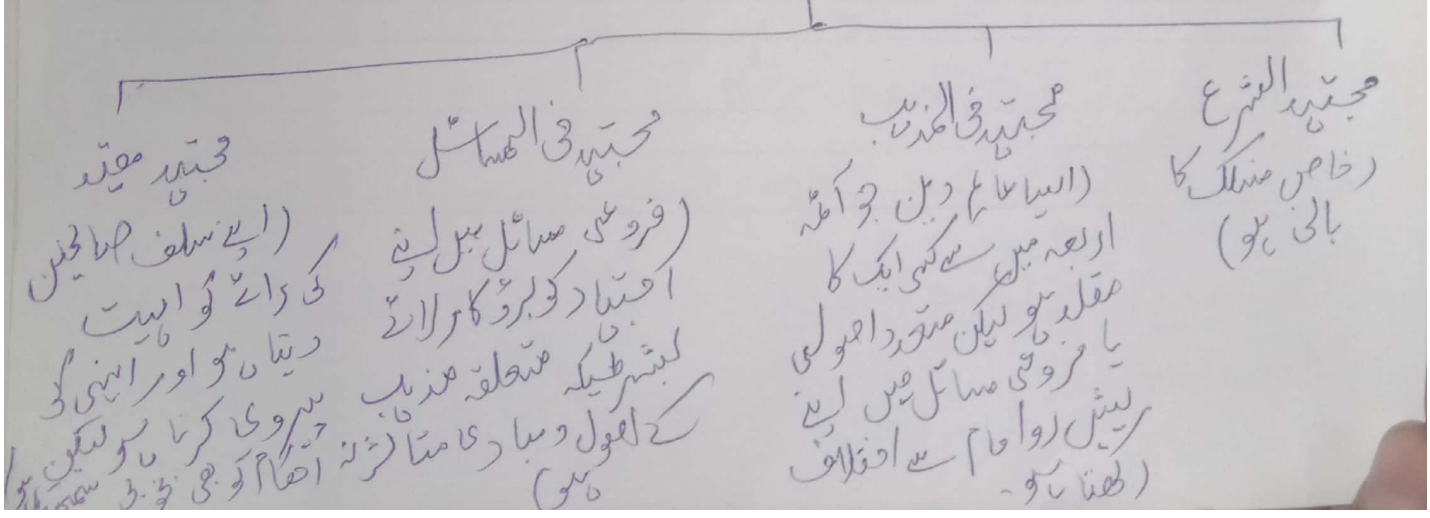 مجتہد الشرع
(خاص مسلک کا
بانی ہو)
مجتہد فی المذہب
(ایسا عالم دین جو آئمہ
اربعہ میں سے کسی ایک کا
مقلد ہو لیکن متعدد اصولی
یا فروعی مسائل میں اپنے
پیش رو امام سے اختلاف
رکھتا ہو۔
مجتہد فی المسائل
(فروعی مسائل میں اپنے
اجتہاد کو بروئے کار لائے
بشرطیکہ متعلقہ مذہب
کے اصول و مبادی متاثر نہ
ہو)
مجتہد مقید
(اپنے سلف صالحین
کی رائے کو اہمیت
دیتا ہو اور انہی کی
پیروی کرتا ہو لیکن
احکام کو بھی بخوبی